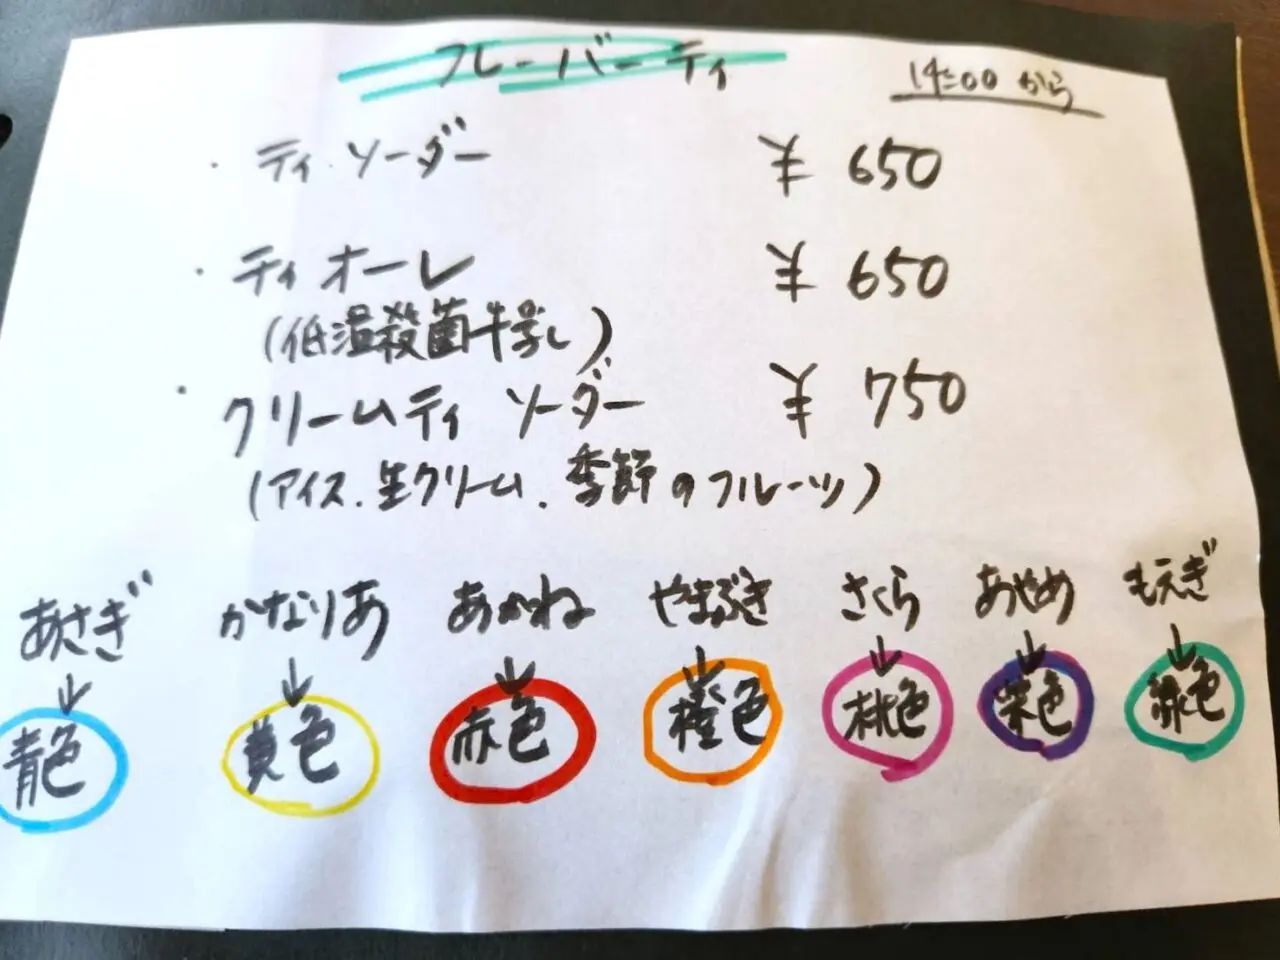 フレーバーティ
14:00 から
・ティソーダー ¥650
・ティオーレ ¥650
(低温殺菌牛乳)
・クリームティ ソーダー ¥750
(アイス、生クリーム、季節のフルーツ)
あさぎ かなりあ あかね やまぶき さくら あやめ もえぎ
↓ ↓ ↓ ↓ ↓ ↓ ↓
青色 黄色 赤色 橙色 桃色 紫色 緑色